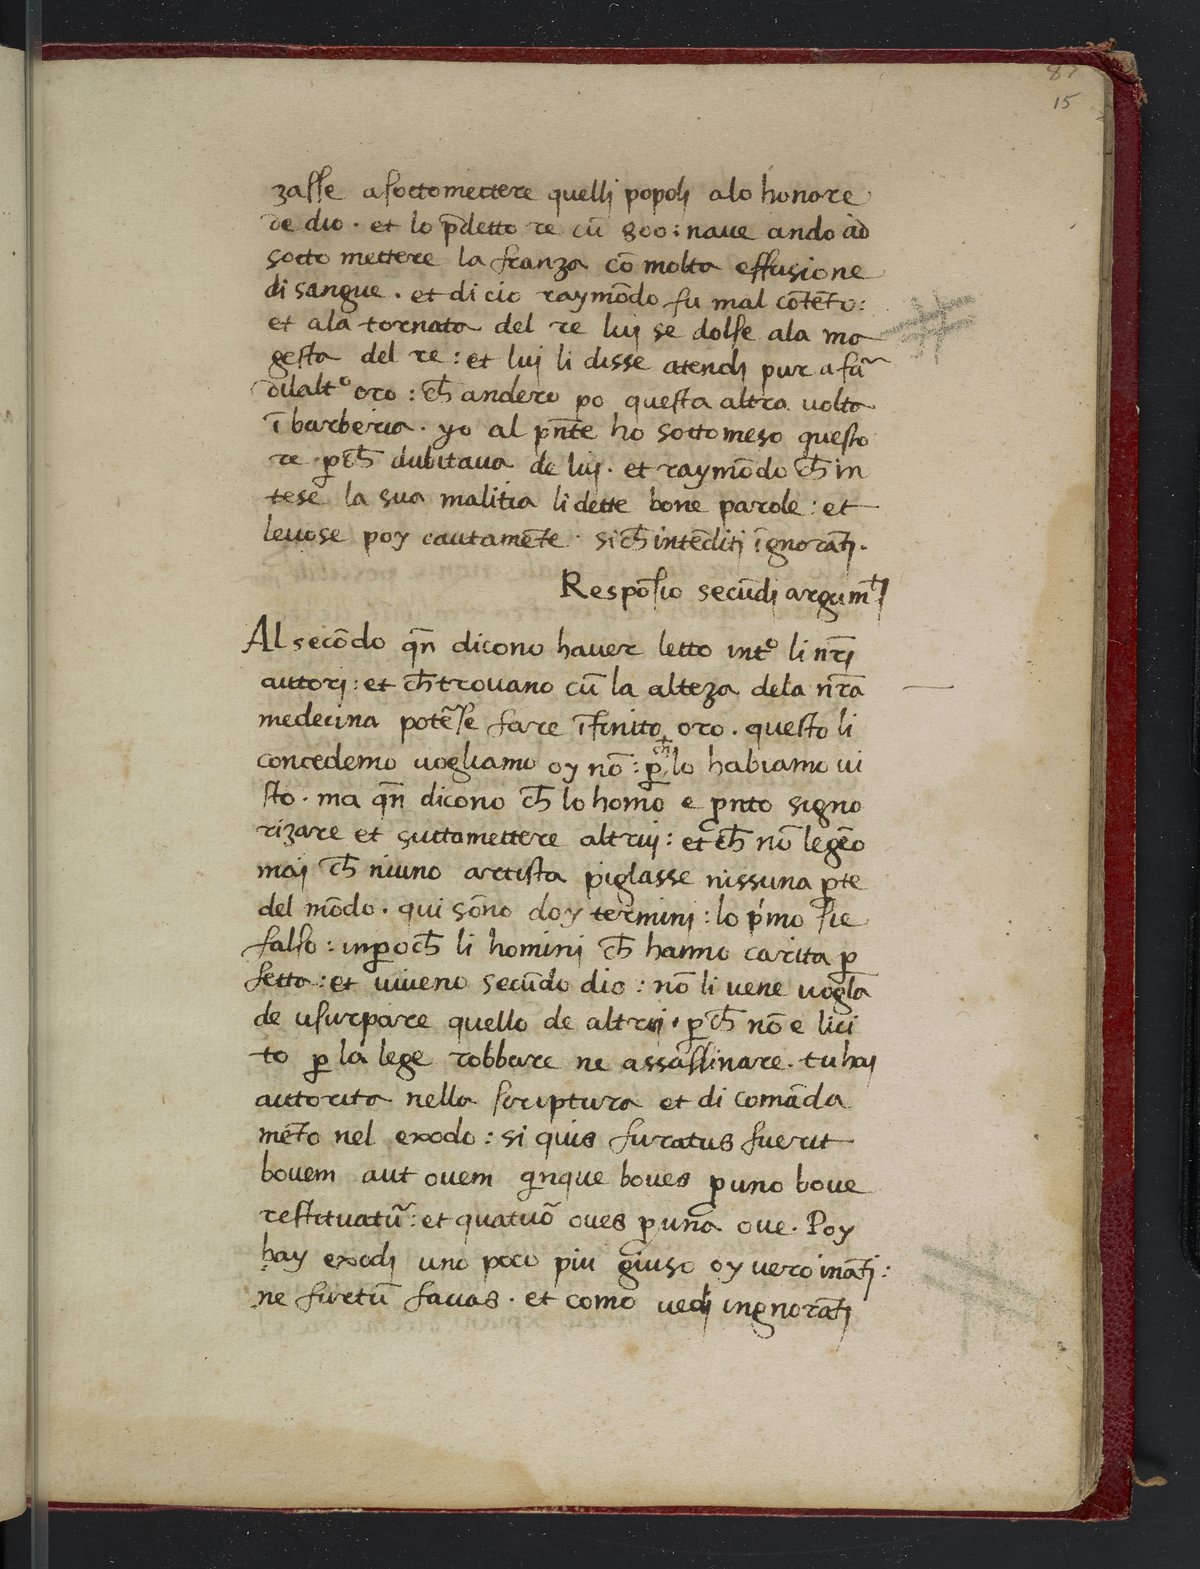 87
15
zasse a sottomettere quelli popoli alo honore
de dio . et lo p̄detto re cū 800 : naue ando ad
sotto mettere la franza cō molta effusione
di sangue . et di cio raymōdo fu mal cōtēto :
et ala tornata del re luj se dolse ala ma
gesta del re : et luj li disse atendj pur a fa͂
dilalt° oro : ch̄ andero po questa altra uolta
ī barberia . yo al pn̄te ho sottomeso questo
re ꝑch̄ dubitaua de luj . et raymōdo ch̄ in
tese la sua malitia li dette bone parole : et
leuose poy cautamēte . si ch̄ intēditi īgnorātj .
Respōsio secūdj argum̄tj
Al secōdo qn̄ dicono hauer letto int° li nr̄j
auttorj : et ch̄ trouano cū la alteza dela nr̄a
medecina potēse fare īfinito oro . questo li
concedemo uogliamo oy nō : ꝑch̄ lo habiamo ui
sto . ma qn̄ dicono ch̄ lo homo e ꝓnto signo
rizare et suttomettere altruj : et ch̄ nō legēo
maj ch̄ niuno artista piglasse nissuna ꝑte
del mōdo . qui sōno doy terminj : lo p'mo sie
falso : inꝑoch̄ li hominj ch̄ hanno carita ꝑ
fetta : et uiueno secūdo dio : nō li uene uogla
de usurpare quello de altruj . ꝑch̄ nō e lici
to ꝑ la lege robbare ne assassinare . tu haj
autorita nella scriptura et di comāda
mēto nel exodo : si quis furatus fuerit
bouem aut ouem qinque boues ꝓ uno boue
restituatū : et quatuō oues ꝓ una oue . Poy
hay exodj uno poco piu giuso oy uero inātj :
ne furtū fauas . et como uedj ingnorātj